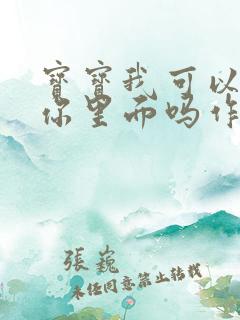 寶寶我可以
你里面吗作
張巍
未经同意禁止转载